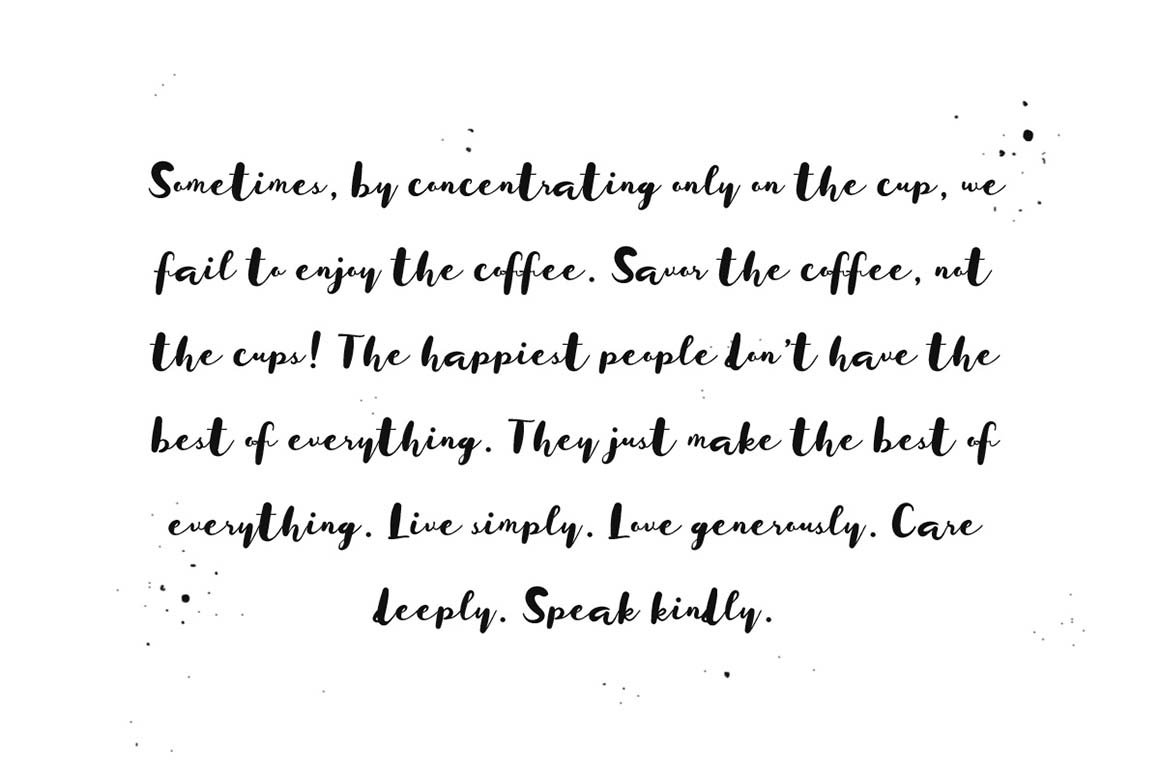 Sometimes, by concentrating only on the cup, we
fail to enjoy the coffee. Savor the coffee, not
the cups! The happiest people don't have the
best of everything. They just make the best of
everything. Live simply. Love generously. Care
deeply. Speak kindly.